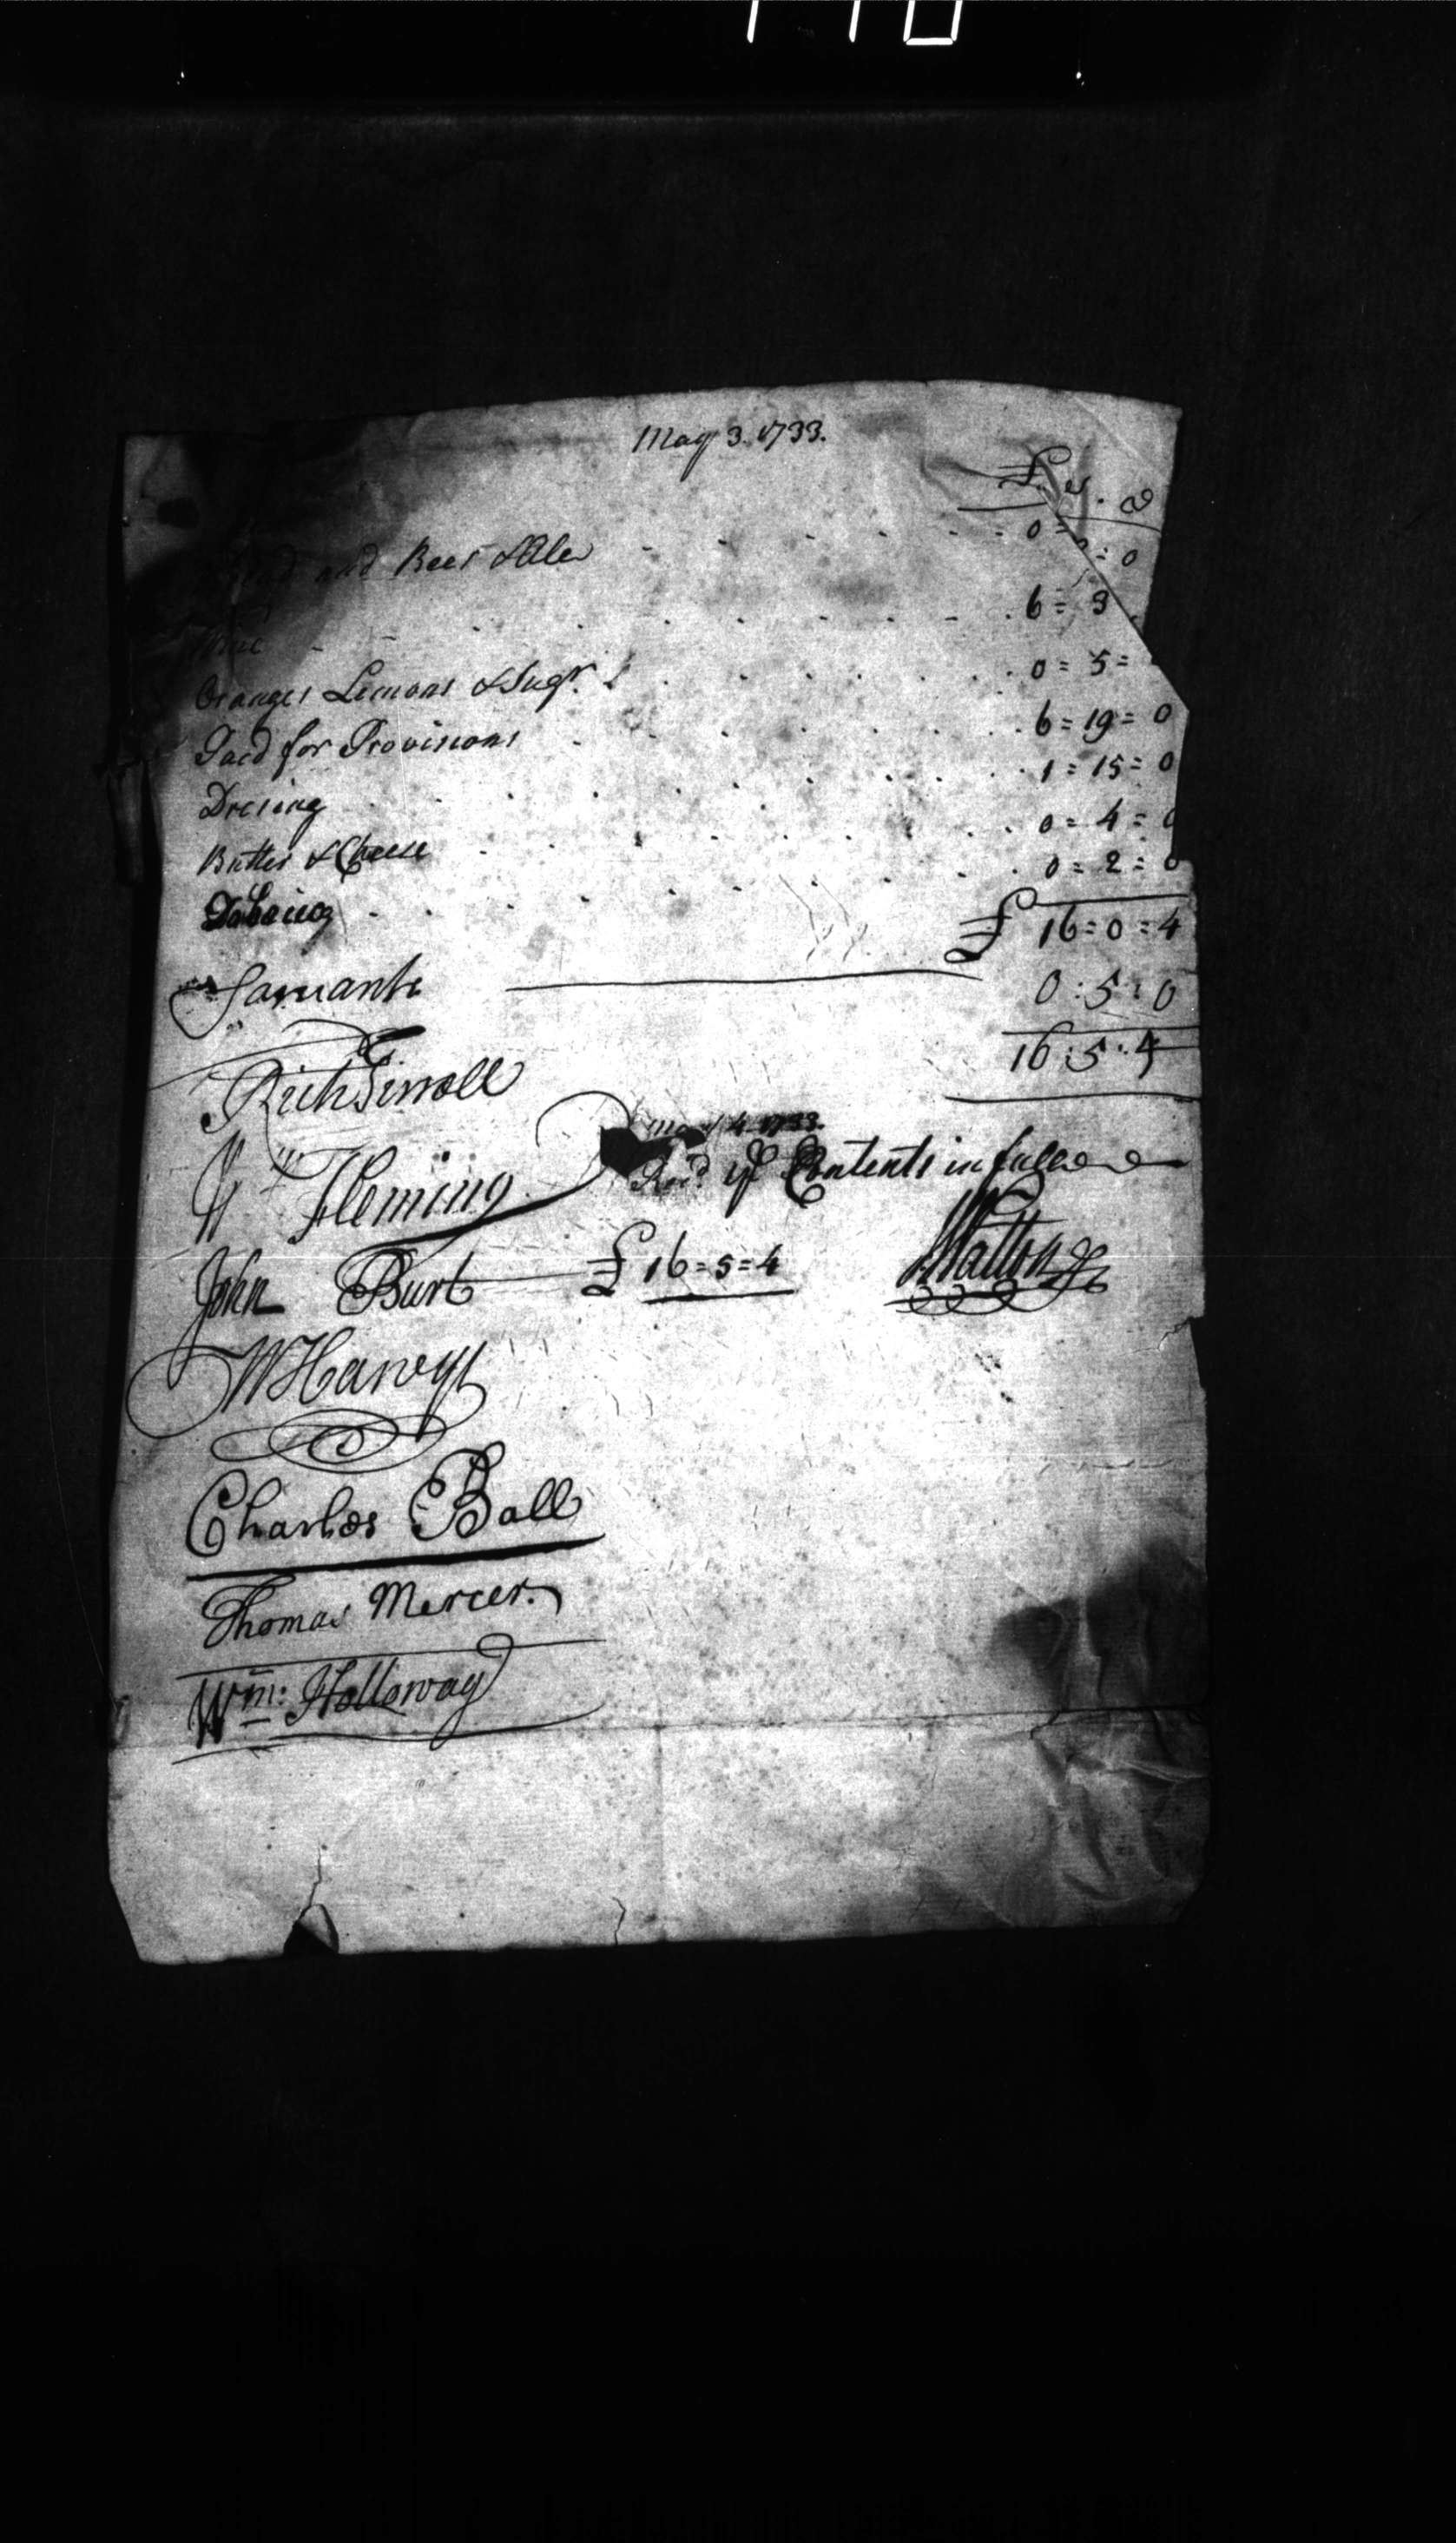 May 3. 1733.
£. s. d
and Beer & Ale 0 = = 0
6 = 9
Oranges Lemons & Sugr. 0 = 5 =
Paid for Provisions 6 = 19 = 0
Dresing 1 = 15 = 0
Butter & Cheese 0 = 4 = 0
Tobacco 0 = 2 = 0
£ 16 = 0 = 4
Sarvants 0 : 5 : 0
16 : 5 : 4
Rich
May 4 1733.
Fleming Recd. ye Contents in full
John Burt £ 16 = 5 = 4 Walton
W Harvey
Charles Ball
Thomas Mercer.
Wm: Holloway